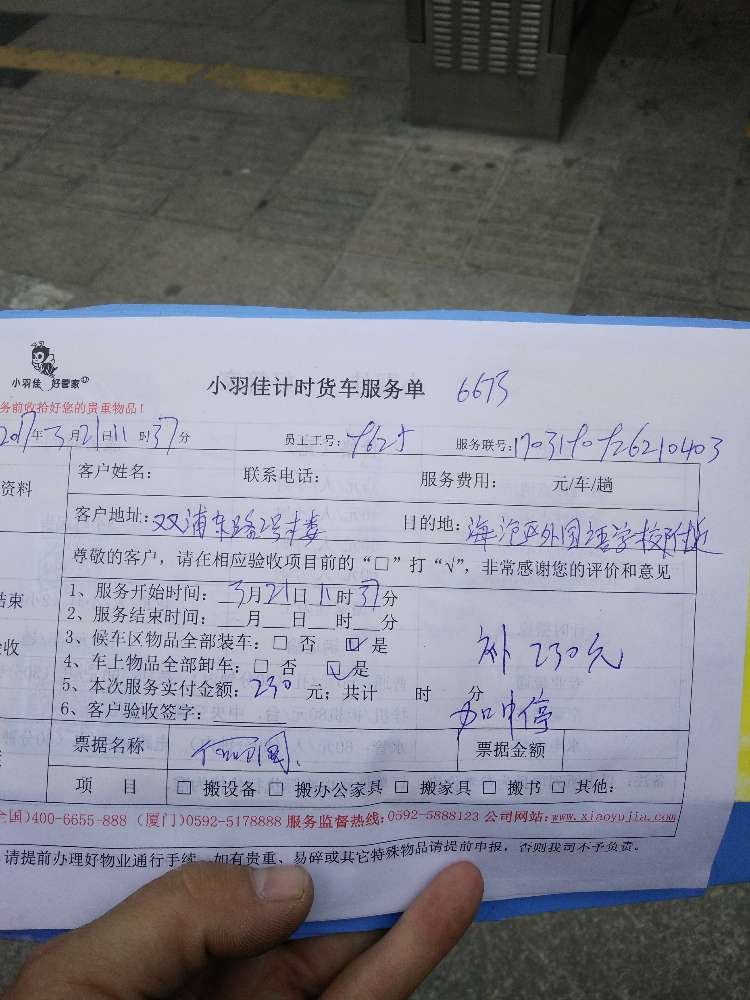 小羽佳 好管家
小羽佳计时货车服务单 6673
务前收拾好您的贵重物品!
2017年3月21日11时37分 员工工号: 服务联号:
资料
客户姓名: 联系电话: 服务费用: 元/车/趟
客户地址:双浦东路2号楼 目的地:海沧区外国语学校附近
尊敬的客户,请在相应验收项目前的“□”打“√”,非常感谢您的评价和意见
1、服务开始时间:3月21日11时37分
结束
2、服务结束时间: 月 日 时 分
3、候车区物品全部装车:□ 否 ☑ 是
补230元
4、车上物品全部卸车:□ 否 ☑ 是
5、本次服务实付金额:230元;共计 时 分
加中停
6、客户验收签字:
票据名称 票据金额
项 目 □ 搬设备 □ 搬办公家具 □ 搬家具 □ 搬书 □ 其他:
全国)400-6655-888 (厦门)0592-5178888 服务监督热线:0592-5888123 公司网站:www.xiaoyujia.com
请提前办理好物业通行手续。如有贵重、易碎或其它特殊物品请提前申报,否则我司不予负责。